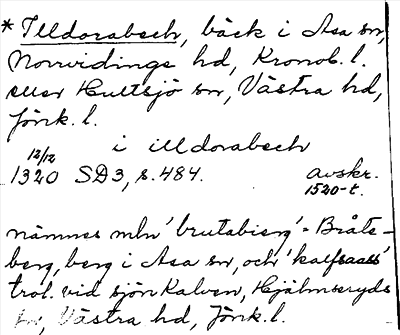 * Illdorabech, bäck i Asa sn,
Norrvidinge hd, Kronob. l.
eller Hultsjö sn, Västra hd,
Jönk. l.
i illdorabech
12/12
1320 SD3, s. 484. avskr.
1520-t.
nämnes mln 'brutabierg' = Bråte-
berg, berg i Asa sn, och 'kalfsaas'
trol. vid sjön Kalven, Hjälmseryds
sn, Västra hd, Jönk. l.